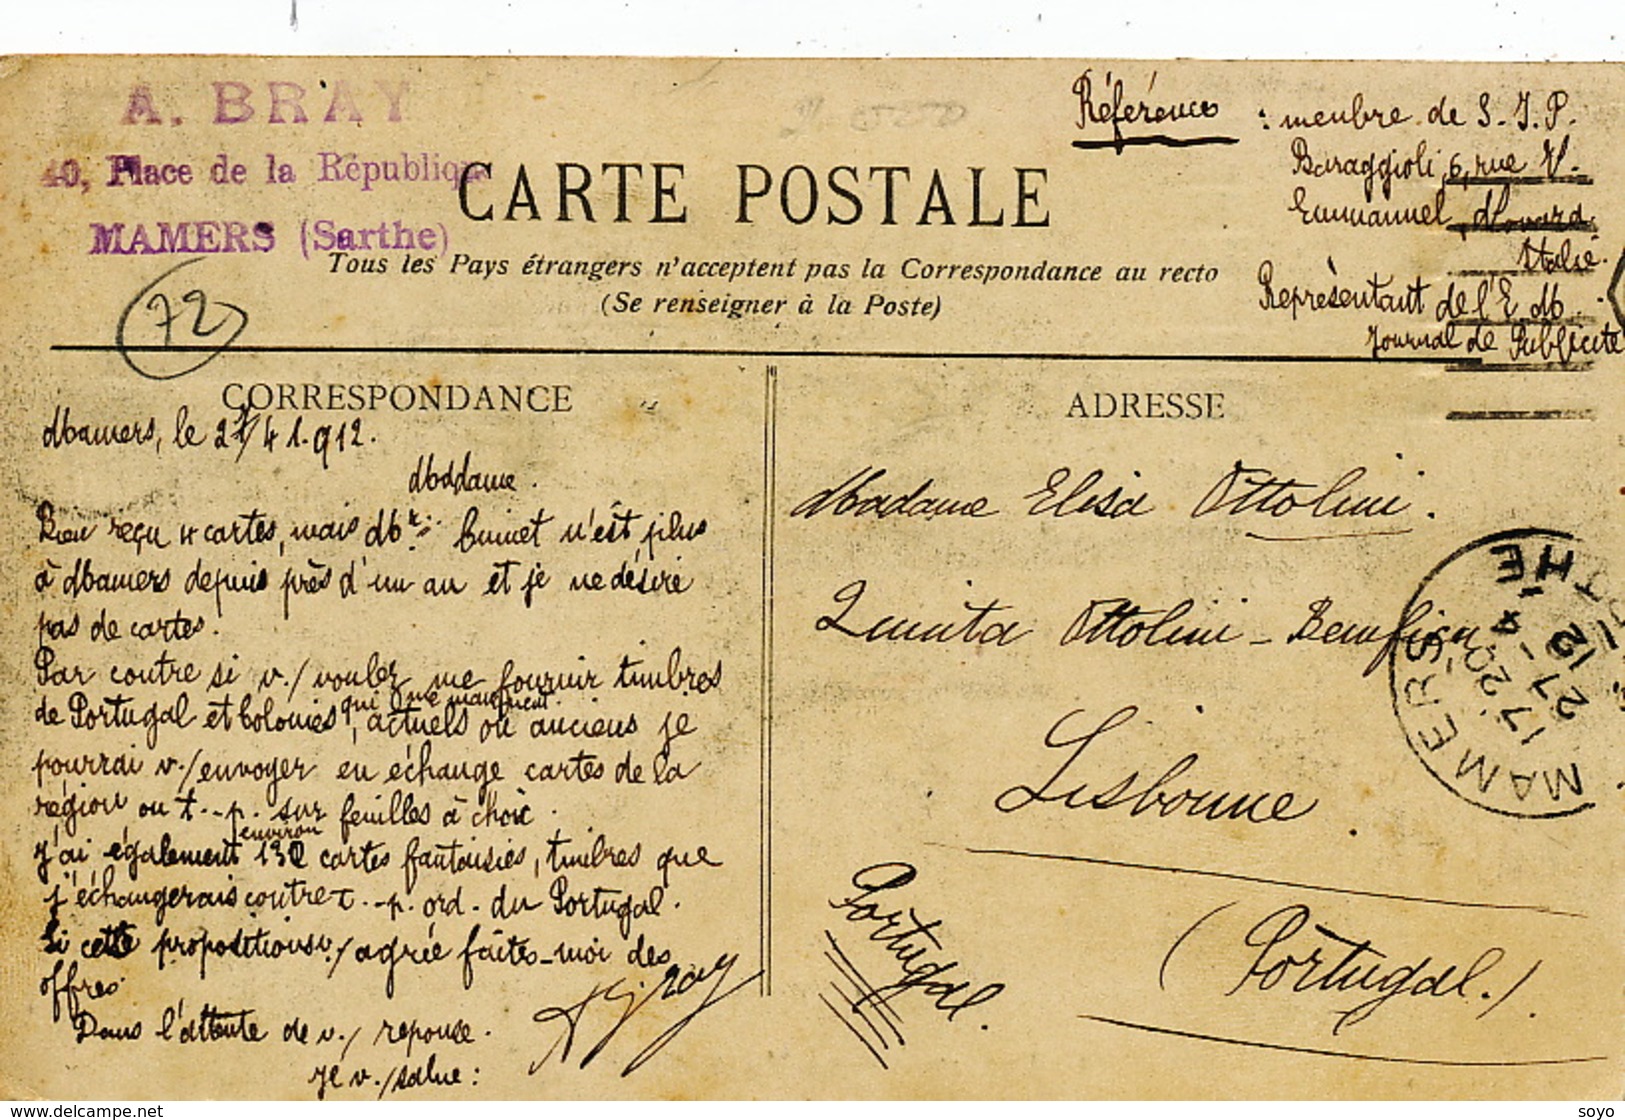 A. BRAY
40, Place de la République
MAMERS (Sarthe)
CARTE POSTALE
Tous les Pays étrangers n'acceptent pas la Correspondance au recto
(Se renseigner à la Poste)
72
Références : membre de S.I.P.
Baraggioli, 6, rue V.
Emmanuel, Novara
Italie.
Représentant de l'E. M.
Journal de Publicité
CORRESPONDANCE
Mamers, le 27/4 1.912.
Madame.
Bien reçu 4 cartes, mais Mr. n'est plus
à Mamers depuis près d'un an et je ne désire
pas de cartes.
Par contre si v./ voulez me fournir timbres
de Portugal et Colonies, qui me manquent, actuels ou anciens je
pourrai v./ envoyer en échange cartes de la
région ou t.-p. sur feuilles à choix.
J'ai également environ 130 cartes fantaisies, timbres que
j'échangerais contre t.-p. ord. du Portugal.
Si cette proposition v./ agrée faites-moi des
offres.
Dans l'attente de v./ réponse.
Je v./ salue :
ABray
ADRESSE
Madame Elisa Ottolini.
Quinta Ottolini - Bemfica
Lisbonne.
Portugal.
(Portugal.)
MAMERS
17 20
27 - 4
12
SARTHE
https://www.delcampe.net
soyo